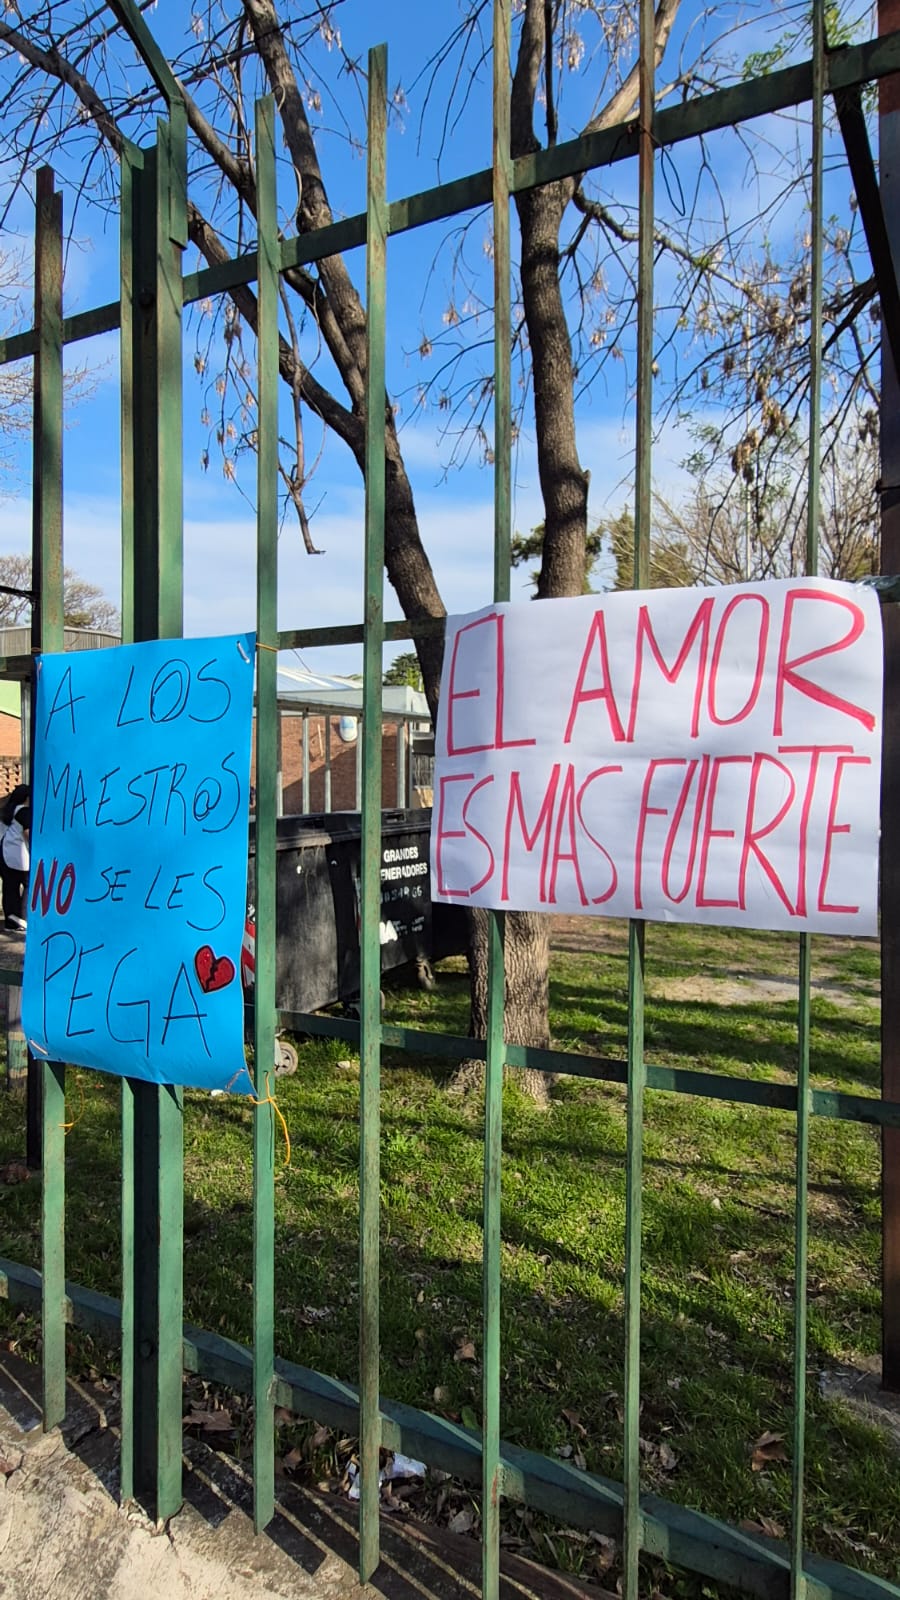 A LOS
MAESTR@S
NO SE LES
PEGA
EL AMOR
ES MAS FUERTE
GRANDES
GENERADORES